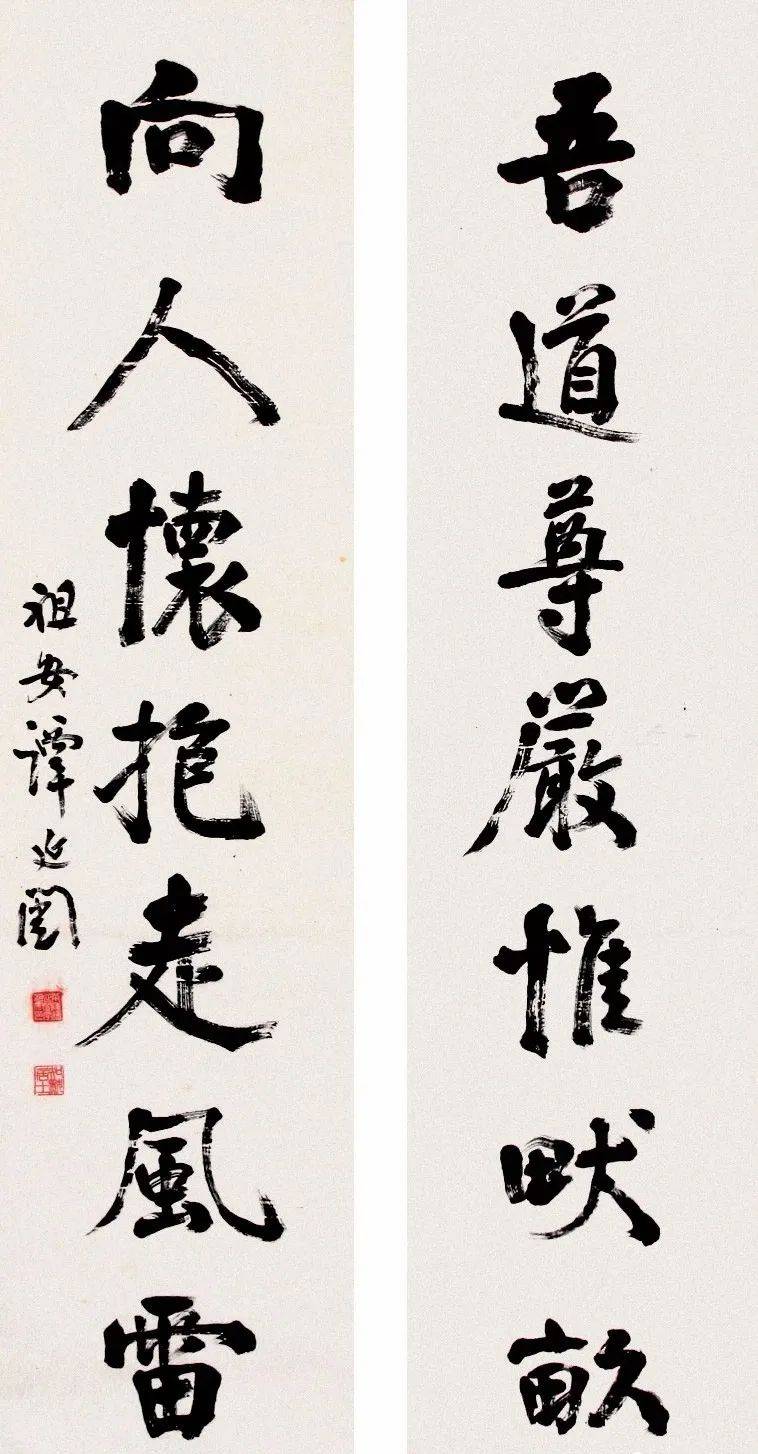 吾道尊嚴惟畎畝
向人懷抱走風雷
祖安譚延闓